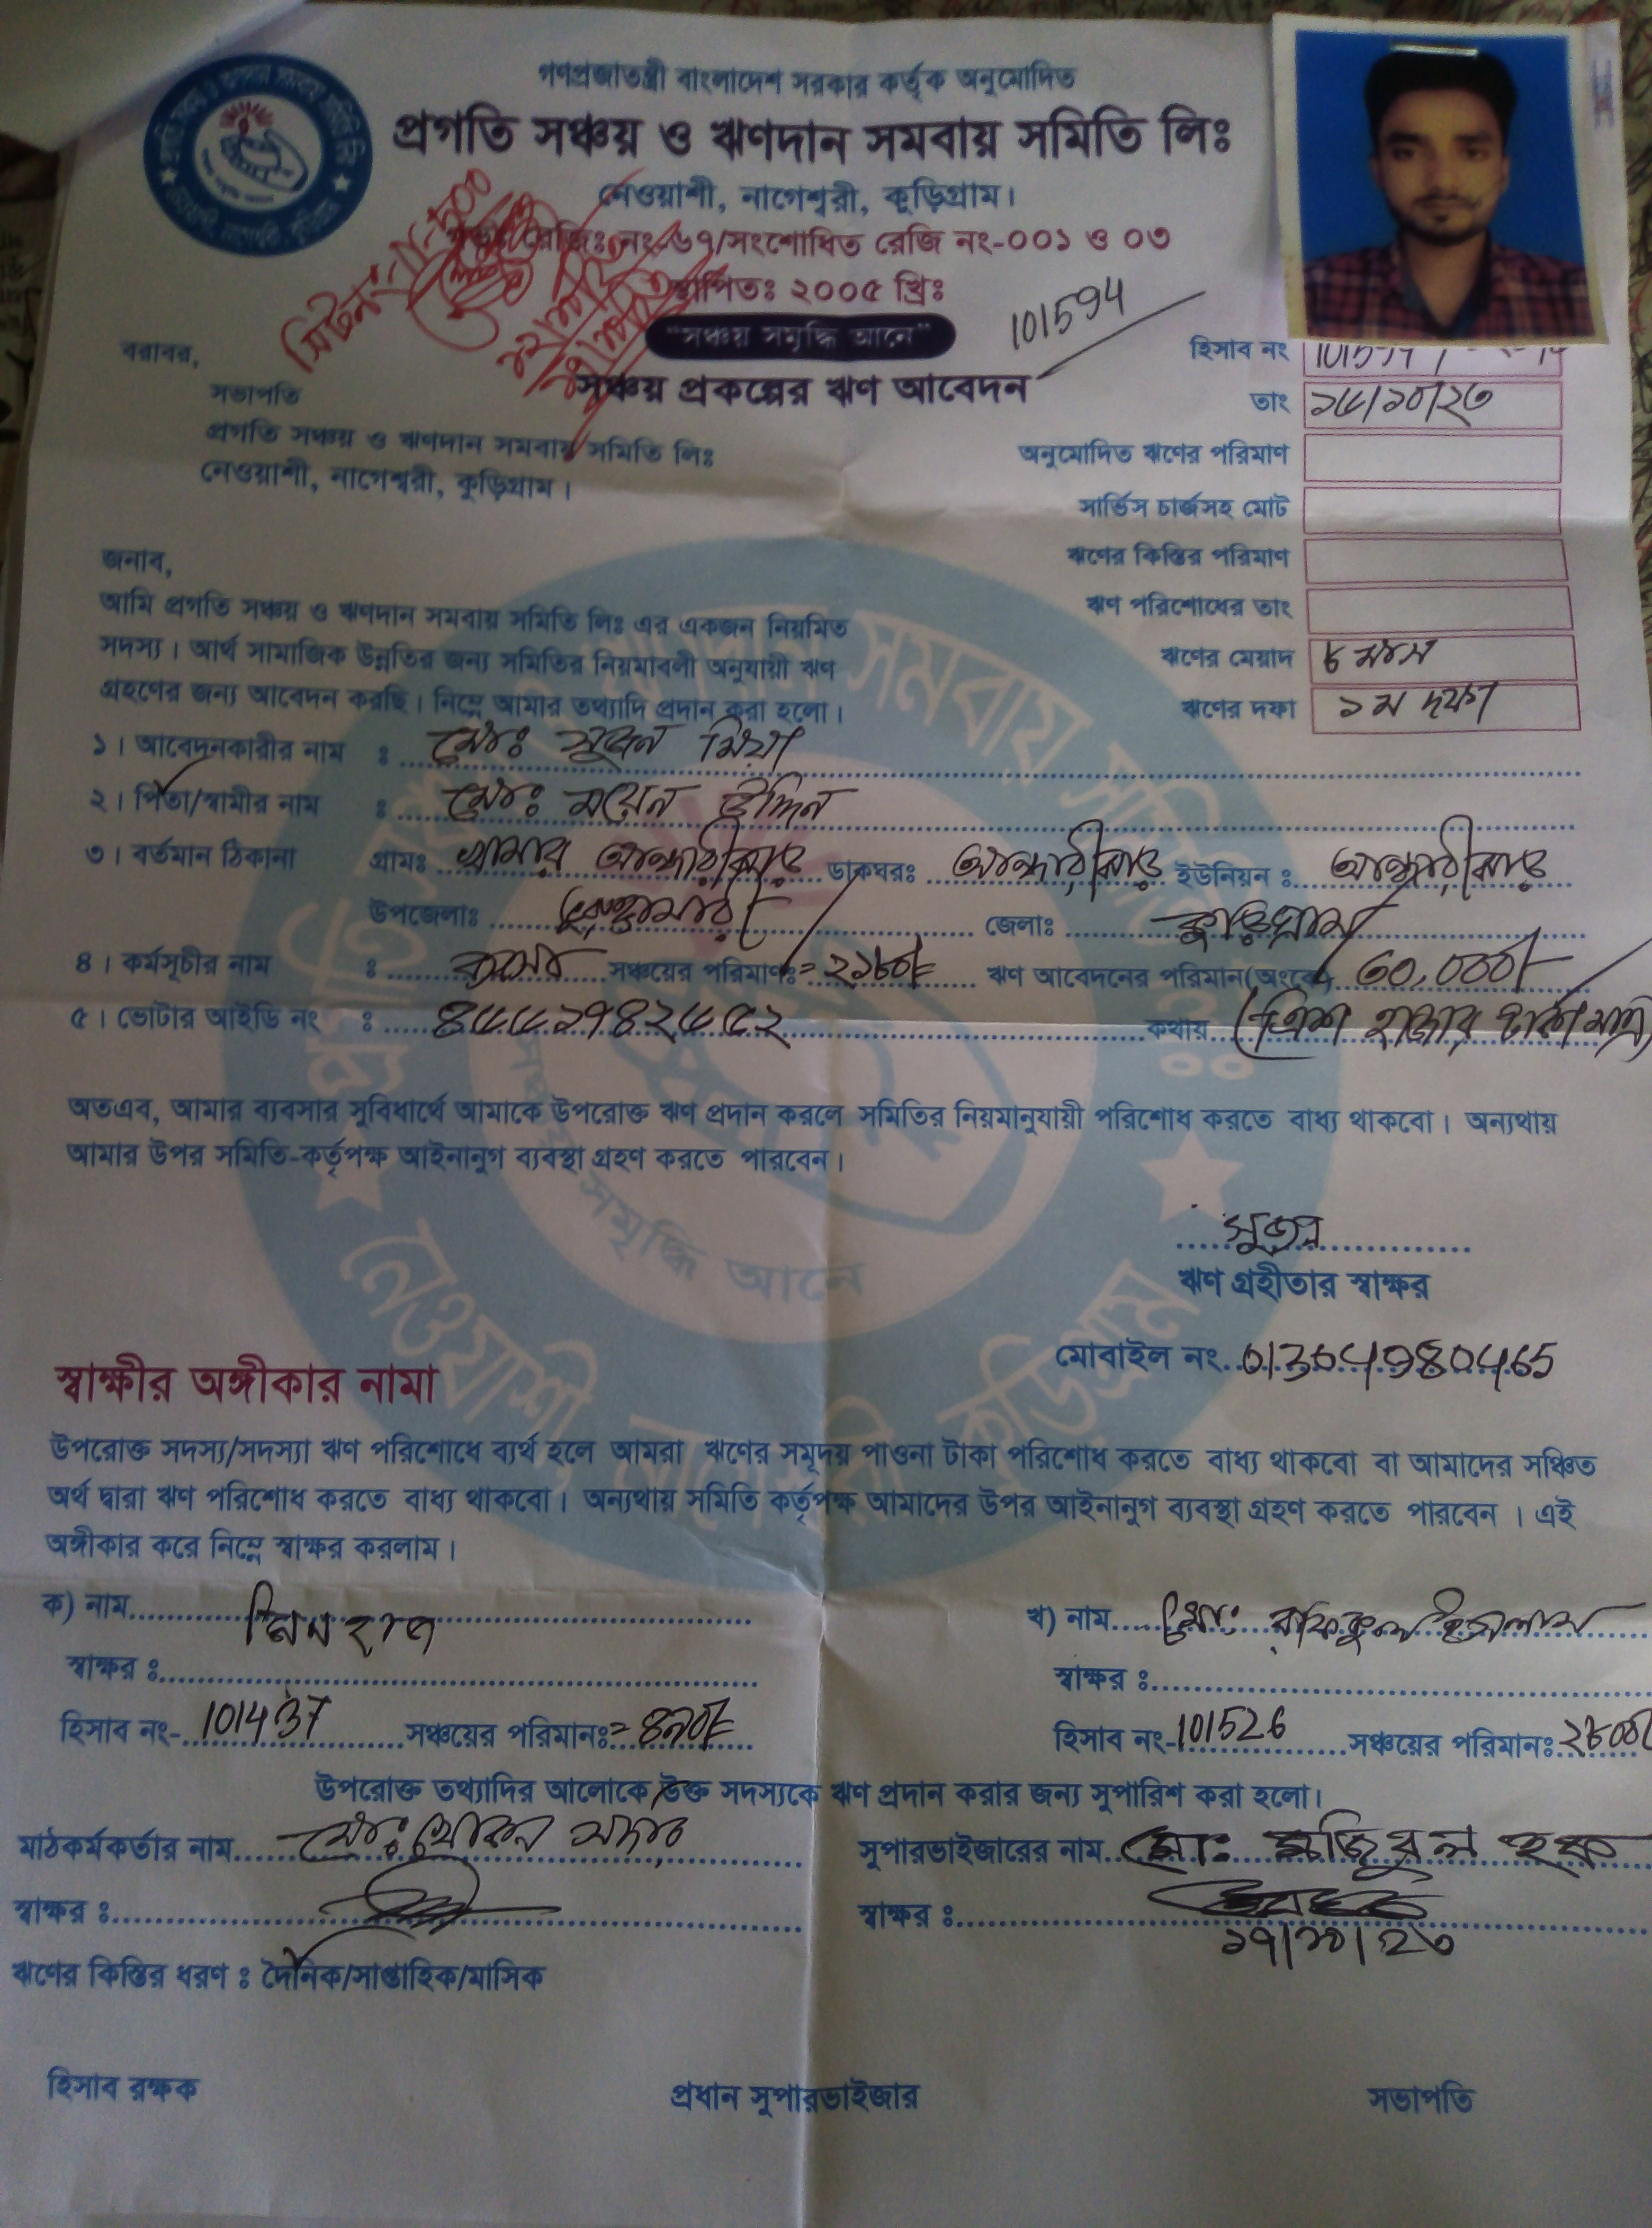 গণপ্রজাতন্ত্রী বাংলাদেশ সরকার কর্তৃক অনুমোদিত
প্রগতি সঞ্চয় ও ঋণদান সমবায় সমিতি লিঃ
নেওয়াশী, নাগেশ্বরী, কুড়িগ্রাম।
রেজিঃ নং-৬৭/সংশোধিত রেজি নং-০০১ ও ০৩
স্থাপিতঃ ২০০৫ খ্রিঃ
"সঞ্চয় সমৃদ্ধি আনে"
101594
সঞ্চয় প্রকল্পের ঋণ আবেদন
হিসাব নং
তাং ১৫/১০/২৩
অনুমোদিত ঋণের পরিমান
সার্ভিস চার্জসহ মোট
ঋণের কিস্তির পরিমাণ
ঋণ পরিশোধের তাং
ঋণের মেয়াদ ৮ মাস
ঋণের দফা ১ম দফা
বরাবর,
সভাপতি
প্রগতি সঞ্চয় ও ঋণদান সমবায় সমিতি লিঃ
নেওয়াশী, নাগেশ্বরী, কুড়িগ্রাম।
জনাব,
আমি প্রগতি সঞ্চয় ও ঋণদান সমবায় সমিতি লিঃ এর একজন নিয়মিত
সদস্য। আর্থ সামাজিক উন্নতির জন্য সমিতির নিয়মাবলী অনুযায়ী ঋণ
গ্রহণের জন্য আবেদন করছি। নিম্নে আমার তথ্যাদি প্রদান করা হলো।
১। আবেদনকারীর নাম : মোঃ সুজন মিয়া
২। পিতা/স্বামীর নাম : মোঃ ময়েন উদ্দিন
৩। বর্তমান ঠিকানা গ্রামঃ খামার আন্ধারীঝাড় ডাকঘরঃ আন্ধারীঝাড় ইউনিয়ন : আন্ধারীঝাড়
উপজেলাঃ ভুরুঙ্গামারী জেলাঃ কুড়িগ্রাম
৪। কর্মসূচীর নাম : সঞ্চয়ের পরিমাণঃ= ২১৮০/= ঋণ আবেদনের পরিমান(অংকে) ৩০,০০০/-
৫। ভোটার আইডি নং : ৪৫৫১৭৪২৫৫২ কথায় (ত্রিশ হাজার টাকা মাত্র)
অতএব, আমার ব্যবসার সুবিধার্থে আমাকে উপরোক্ত ঋণ প্রদান করলে সমিতির নিয়মানুযায়ী পরিশোধ করতে বাধ্য থাকবো। অন্যথায়
আমার উপর সমিতি-কর্তৃপক্ষ আইনানুগ ব্যবস্থা গ্রহণ করতে পারবেন।
সুজন
ঋণ গ্রহীতার স্বাক্ষর
মোবাইল নং
স্বাক্ষীর অঙ্গীকার নামা
উপরোক্ত সদস্য/সদস্যা ঋণ পরিশোধে ব্যর্থ হলে আমরা ঋণের সমূদয় পাওনা টাকা পরিশোধ করতে বাধ্য থাকবো বা আমাদের সঞ্চিত
অর্থ দ্বারা ঋণ পরিশোধ করতে বাধ্য থাকবো। অন্যথায় সমিতি কর্তৃপক্ষ আমাদের উপর আইনানুগ ব্যবস্থা গ্রহণ করতে পারবেন। এই
অঙ্গীকার করে নিম্নে স্বাক্ষর করলাম।
ক) নাম মিনহাজ
খ) নাম মোঃ রফিকুল ইসলাম
স্বাক্ষর :
স্বাক্ষর :
হিসাব নং- 101437 সঞ্চয়ের পরিমানঃ=
হিসাব নং- 101526 সঞ্চয়ের পরিমানঃ ২৮০০/
উপরোক্ত তথ্যাদির আলোকে উক্ত সদস্যকে ঋণ প্রদান করার জন্য সুপারিশ করা হলো।
মাঠকর্মকর্তার নাম মোঃ খোকন
সুপারভাইজারের নাম মোঃ মজিবুল হক
স্বাক্ষর :
স্বাক্ষর :
১৭/১০/২৩
ঋণের কিস্তির ধরণ : দৈনিক/সাপ্তাহিক/মাসিক
হিসাব রক্ষক
প্রধান সুপারভাইজার
সভাপতি